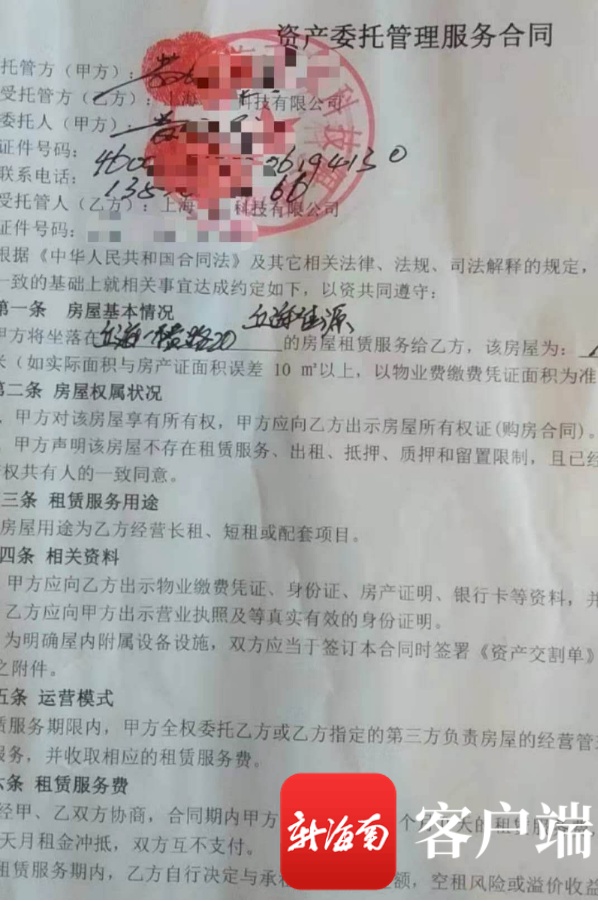 资产委托管理服务合同
托管方（甲方）：黄
受托管方（乙方）：上海 科技有限公司
委托人（甲方）：黄
证件号码：
联系电话： 138 66
受托管人（乙方）：上海 科技有限公司
证件号码：
根据《中华人民共和国合同法》及其它相关法律、法规、司法解释的规定，
一致的基础上就相关事宜达成约定如下，以资共同遵守：
第一条 房屋基本情况
甲方将坐落在丘海一横路20 丘海佳源 的房屋租赁服务给乙方，该房屋为：
米（如实际面积与房产证面积误差 10 ㎡以上，以物业费缴费凭证面积为准
第二条 房屋权属状况
，甲方对该房屋享有所有权，甲方应向乙方出示房屋所有权证(购房合同)。
，甲方声明该房屋不存在租赁服务、出租、抵押、质押和留置限制，且已经
权共有人的一致同意。
三条 租赁服务用途
房屋用途为乙方经营长租、短租或配套项目。
四条 相关资料
甲方应向乙方出示物业缴费凭证、身份证、房产证明、银行卡等资料，并
乙方应向甲方出示营业执照及等真实有效的身份证明。
为明确屋内附属设备设施，双方应当于签订本合同时签署《资产交割单》
之附件。
五条 运营模式
赁服务期限内，甲方全权委托乙方或乙方指定的第三方负责房屋的经营管
服务，并收取相应的租赁服务费。
六条 租赁服务费
经甲、乙双方协商，合同期内甲方 个月 天的租赁
天月租金冲抵，双方互不支付。
租赁服务期内，乙方自行决定与承租 金额，空租风险或溢价收益
新海南 客户端